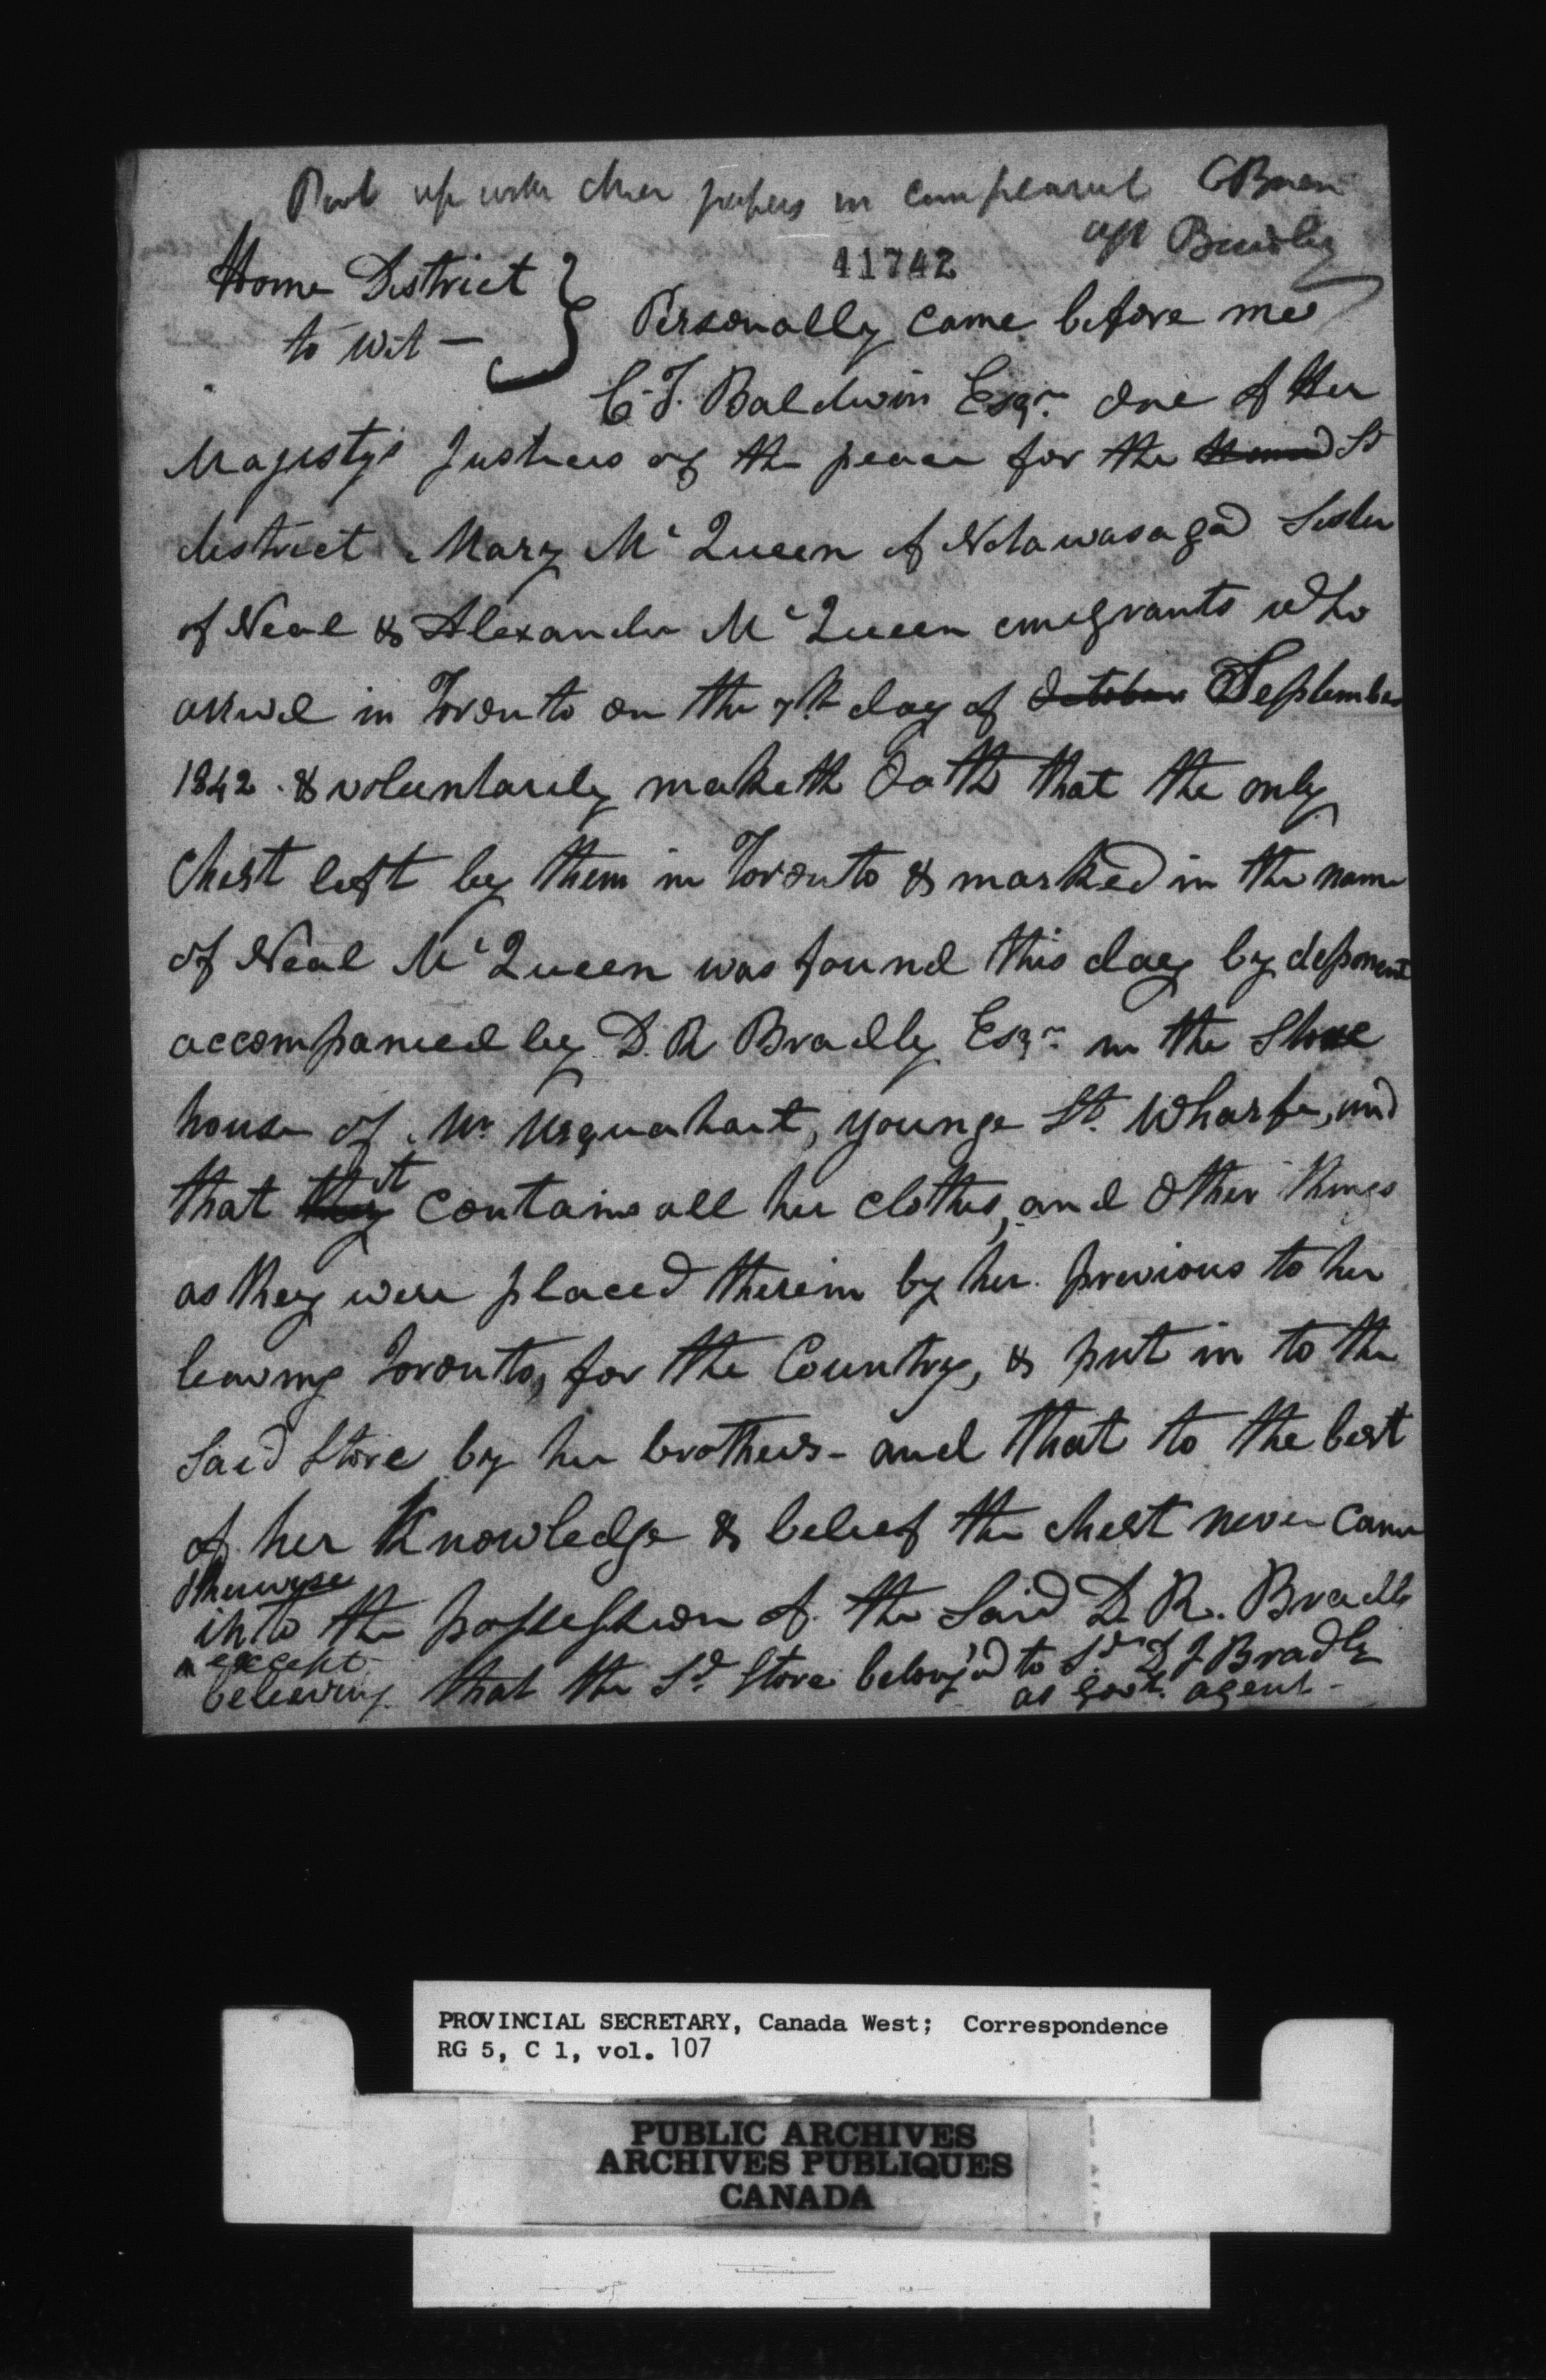 Put up with other papers in complaint OBrien
agt Bradley
41742
Home District }
to wit — } Personally came before me
C. F. Baldwin Esqr. One of Her
Majesty's Justices of the peace for the Home Sd
district Mary Mc Queen of Notawasaga Sister
of Neal & Alexander Mc Queen emigrants who
arrived in Toronto on the 7th day of October September
1842 . & voluntarily maketh Oath that the only
Chest left by them in Toronto & marked in the name
of Neal Mc Queen was found this day by deponent
accompanied by D. R Bradly Esqr. in the Store
house of Mr Urquahart, Younge St. Wharfe, and
that they it contains all her clothes, and Other things
as they were placed therein by her. previous to her
leaving Toronto, for the Country, & put in to the
Said Store by her brothers - and that to the best
of her Knowledge & belief the chest never came
otherwyse
into the possession of the Said D. R. Bradly
except
believing that the Sd. Store belong'd to Sd. Bradly
as Govt. agent -
PROVINCIAL SECRETARY, Canada West; Correspondence
RG 5, C 1, vol. 107
PUBLIC ARCHIVES
ARCHIVES PUBLIQUES
CANADA